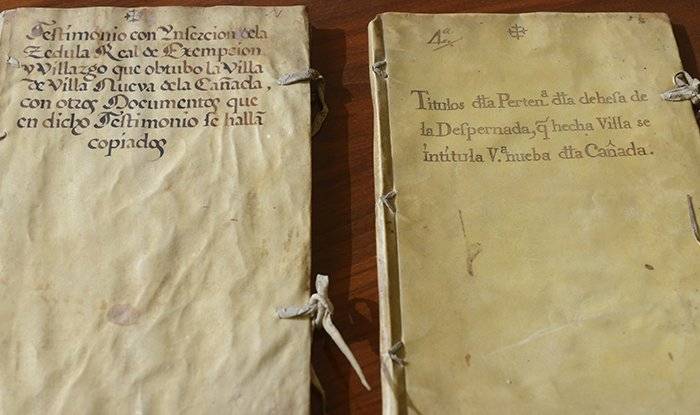 Testimonio con Ynsercion dela
Zedula Real de Exempcion
y Villazgo que obtubo la Villa
de Villa Nueva dela Cañada,
con otros Documentos que
en dicho Testimonio se hallã
copiados
4ª
Titulos dtta Pertenª dtta dehesa de
la Despernada, q̃ hecha Villa se
intitula V.ª nueba dtta Cañada.